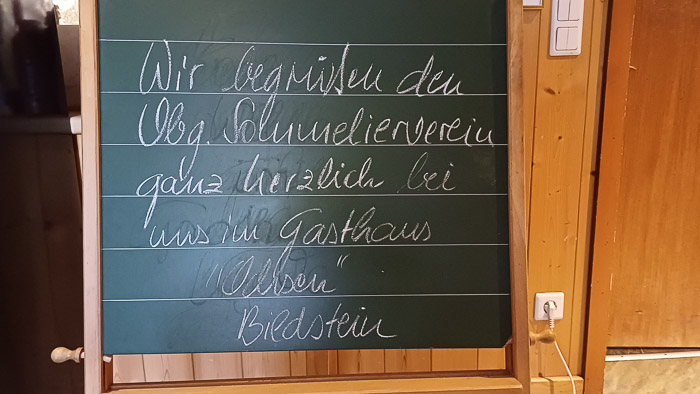 Wir begrüßen den
Vbg. Sommelierverein
ganz herzlich bei
uns im Gasthaus
"Ochsen"
Bildstein